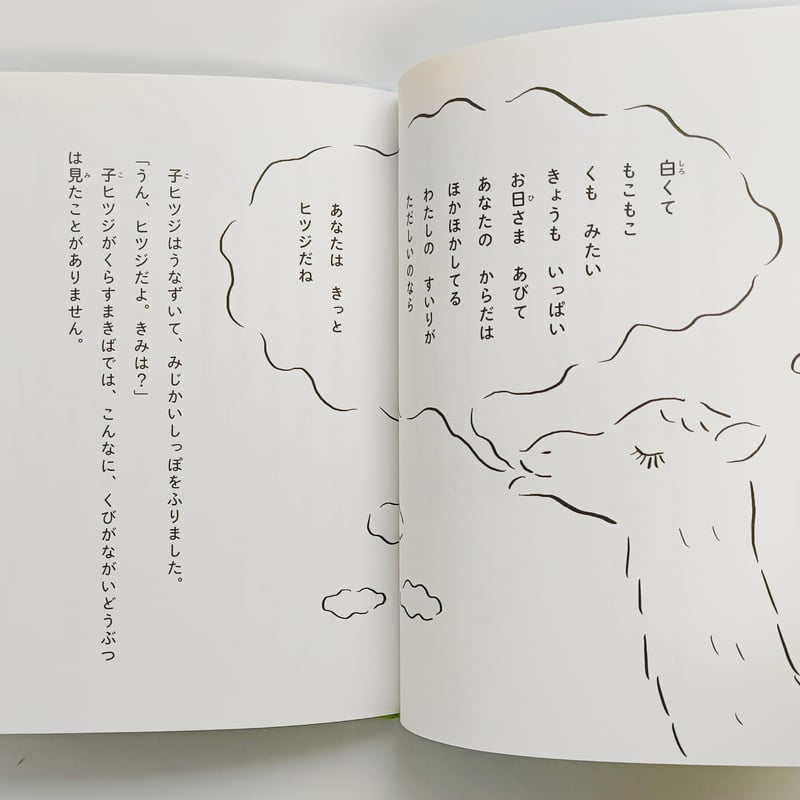 白くて
もこもこ
くも　みたい
きょうも　いっぱい
お日さま　あびて
あなたの　からだは
ほかほかしてる
わたしの　すいりが
ただしいのなら
あなたは　きっと
ヒツジだね
子ヒツジはうなずいて、みじかいしっぽをふりました。
「うん、ヒツジだよ。きみは？」
子ヒツジがくらすまきばでは、こんなに、くびがながいどうぶつ
は見たことがありません。